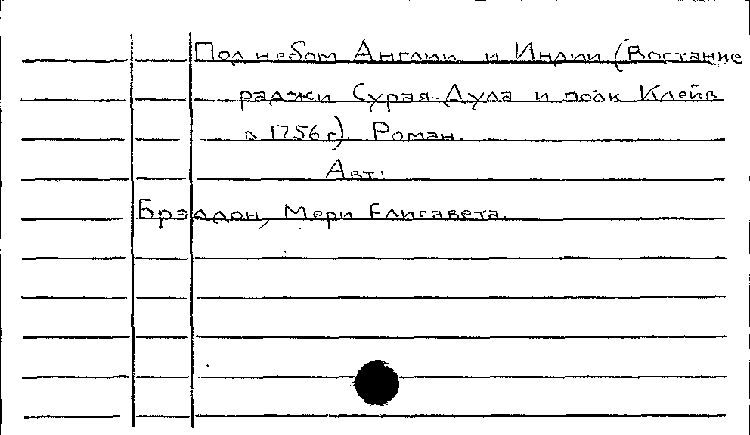 Под небом Англии и Индии (Востание
раджи Сурая-Дула и полк Клейв
в 1756 г) Роман.
Авт:
Брэддон, Мери Елисавета.